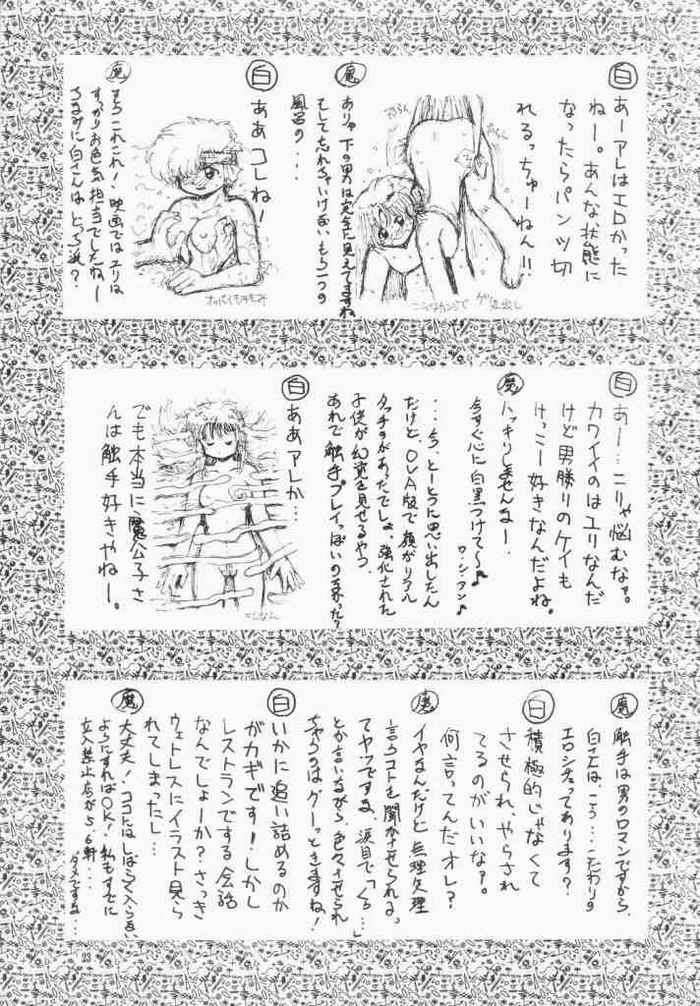 白
あーアレはエロかった
ねー。あんな状態に
なったらパンツ切
れるっちゅーねん!!
魔
ありゃ下の男は完全に見えてますね
そして忘れちゃいけないもう一つの
風呂の・・・
白
ああコレね!
魔
そうこれこれ!映画ではユリは
すっかりお色気担当でしたねー
ちなみに白さんはどっち派?
オッパイモミモミ
こんなカンジで
白
あー…ニリャ悩むなァ。
カワイイのはユリなんだ
けど男勝りのケイも
けっこー好きなんだよね。
魔
ハッキリしませんなー・
今すぐ心に白黒つけて〜♪
ワ・シ・アン♪
・・・今、とーとつに思い出したん
だけどOVA版で顔がリアル
タッチのがあったでしょ、強化された
子供が幻覚を見せるやつ。
あれで触手プレイっぽいの
白
ああアレか…
でも本当に魔公子さ
んは触手好きやねー。
魔
触手は男のロマンですから、
白さんはこう・・・こだわりの
エロシチュってあります?
白
積極的じゃなくて
させられ、やらされ
てるのがいいなァ。
何言ってんだオレ?
魔
イヤなんだけど無理矢理
言うコトを聞かさせられる。
てヤツですね、涙目で「くぅ…」
とか言いながら色々させられ
ちゃうのはグーっときますね!
白
いかに追い詰めるのか
がカギです!しかし
レストランでする会話
なんでしょーか?さっき
ウェトレスにイラスト見ら
れてしまったし…
魔
大丈夫!ココにはしばらく入らない
ようにすればOK!私もすでに
立入禁止店が5、6軒・・・
ダメですな・・・
33